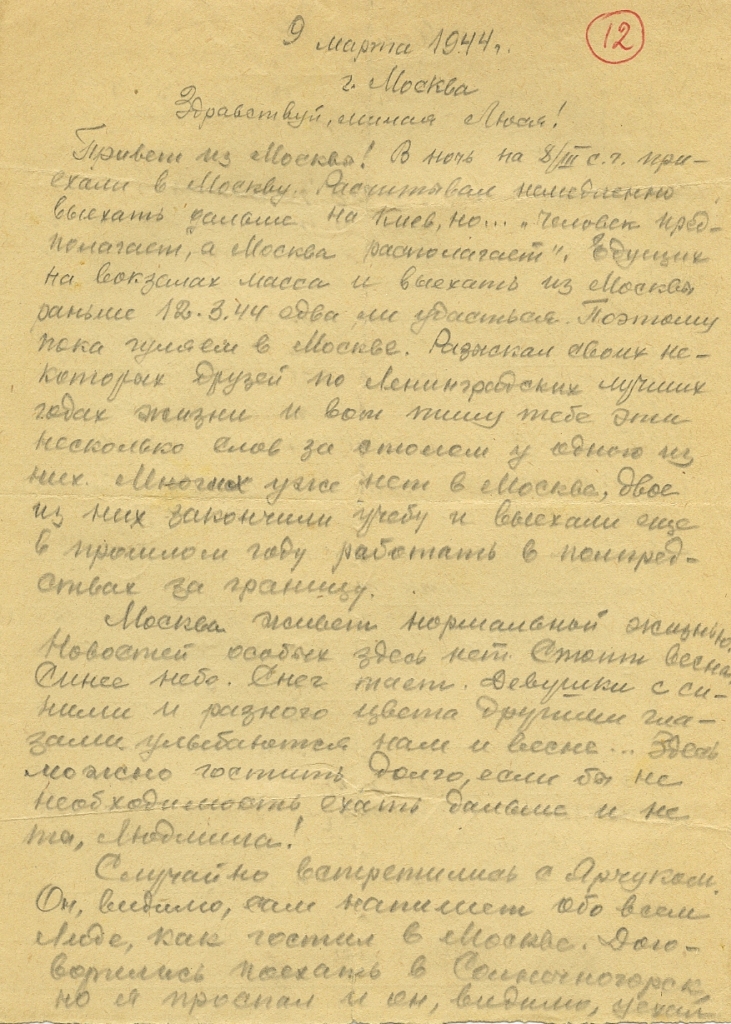 9 марта 1944 г.
12
г. Москва
Здравствуй, милая Люся!
Привет из Москвы! В ночь на 8/III с.г. при-
ехали в Москву. Расчитывал немедленно
выехать дальше на Киев, но... "Человек пред-
полагает, а Москва располагает". Едущих
на вокзалах масса и выехать из Москвы
раньше 12.3.44 едва ли удасться. Поэтому
пока гуляем в Москве. Разыскал своих не-
которых друзей по Ленинградских лучших
годах жизни и вот пишу тебе эти
несколько слов за столом у одного из
них. Многих уже нет в Москве, двое
из них закончили учебу и выехали еще
в прошлом году работать в полпред-
ствах за границу.
Москва живет нормальной жизнью.
Новостей особых здесь нет. Стоит весна.
Синее небо. Снег тает. Девушки с си-
ними и разного цвета другими гла-
зами улыбаются нам и весне... Здесь
можно гостить долго, если бы не
необходимость ехать дальше и не
ты, Людмила!
Случайно встретились с Ярчуком.
Он, видимо, сам напишет обо всем
Люде, как гостил в Москве. Дого-
ворились поехать в Солнечногорск,
но я проспал и он, видимо, уехал